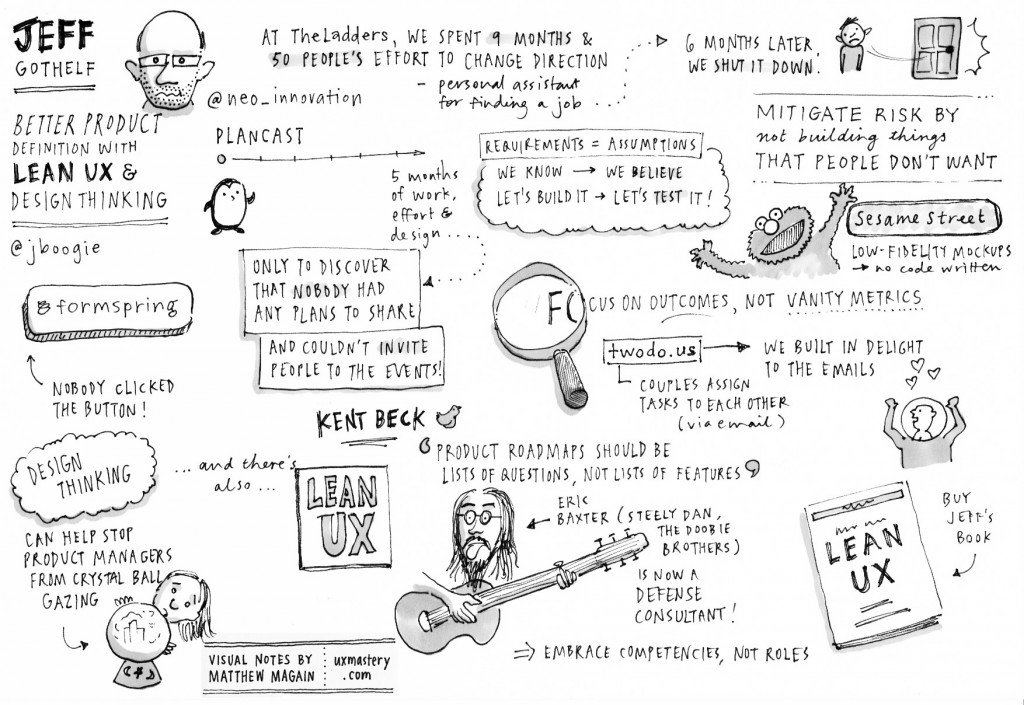 JEFF
GOTHELF
@neo_innovation
BETTER PRODUCT
DEFINITION WITH
LEAN UX &
DESIGN THINKING
@jboogie
AT TheLadders, WE SPENT 9 MONTHS &
50 PEOPLE'S EFFORT TO CHANGE DIRECTION
- personal assistant
for finding a job ...
6 MONTHS LATER
WE SHUT IT DOWN!
MITIGATE RISK BY
not building things
THAT PEOPLE DON'T WANT
PLANCAST
5 months
of work,
effort &
design ....
ONLY TO DISCOVER
THAT NOBODY HAD
ANY PLANS TO SHARE
AND COULDN'T INVITE
PEOPLE TO THE EVENTS!
REQUIREMENTS = ASSUMPTIONS
WE KNOW → WE BELIEVE
LET'S BUILD IT → LET'S TEST IT!
Sesame Street
LOW-FIDELITY MOCKUPS
→ no code written
formspring
NOBODY CLICKED
THE BUTTON!
FOCUS ON OUTCOMES, NOT VANITY METRICS
twodo.us
WE BUILT IN DELIGHT
TO THE EMAILS
COUPLES ASSIGN
TASKS TO EACH OTHER
(via email)
KENT BECK
‘PRODUCT ROADMAPS SHOULD BE
LISTS OF QUESTIONS, NOT LISTS OF FEATURES’
DESIGN
THINKING
... and there's
also ...
LEAN
UX
CAN HELP STOP
PRODUCT MANAGERS
FROM CRYSTAL BALL
GAZING
ERIC
BAXTER (STEELY DAN,
THE DOOBIE
BROTHERS)
IS NOW A
DEFENSE
CONSULTANT!
⇒ EMBRACE COMPETENCIES, NOT ROLES
LEAN
UX
BUY
JEFF'S
BOOK
VISUAL NOTES BY
MATTHEW MAGAIN
uxmastery
.com